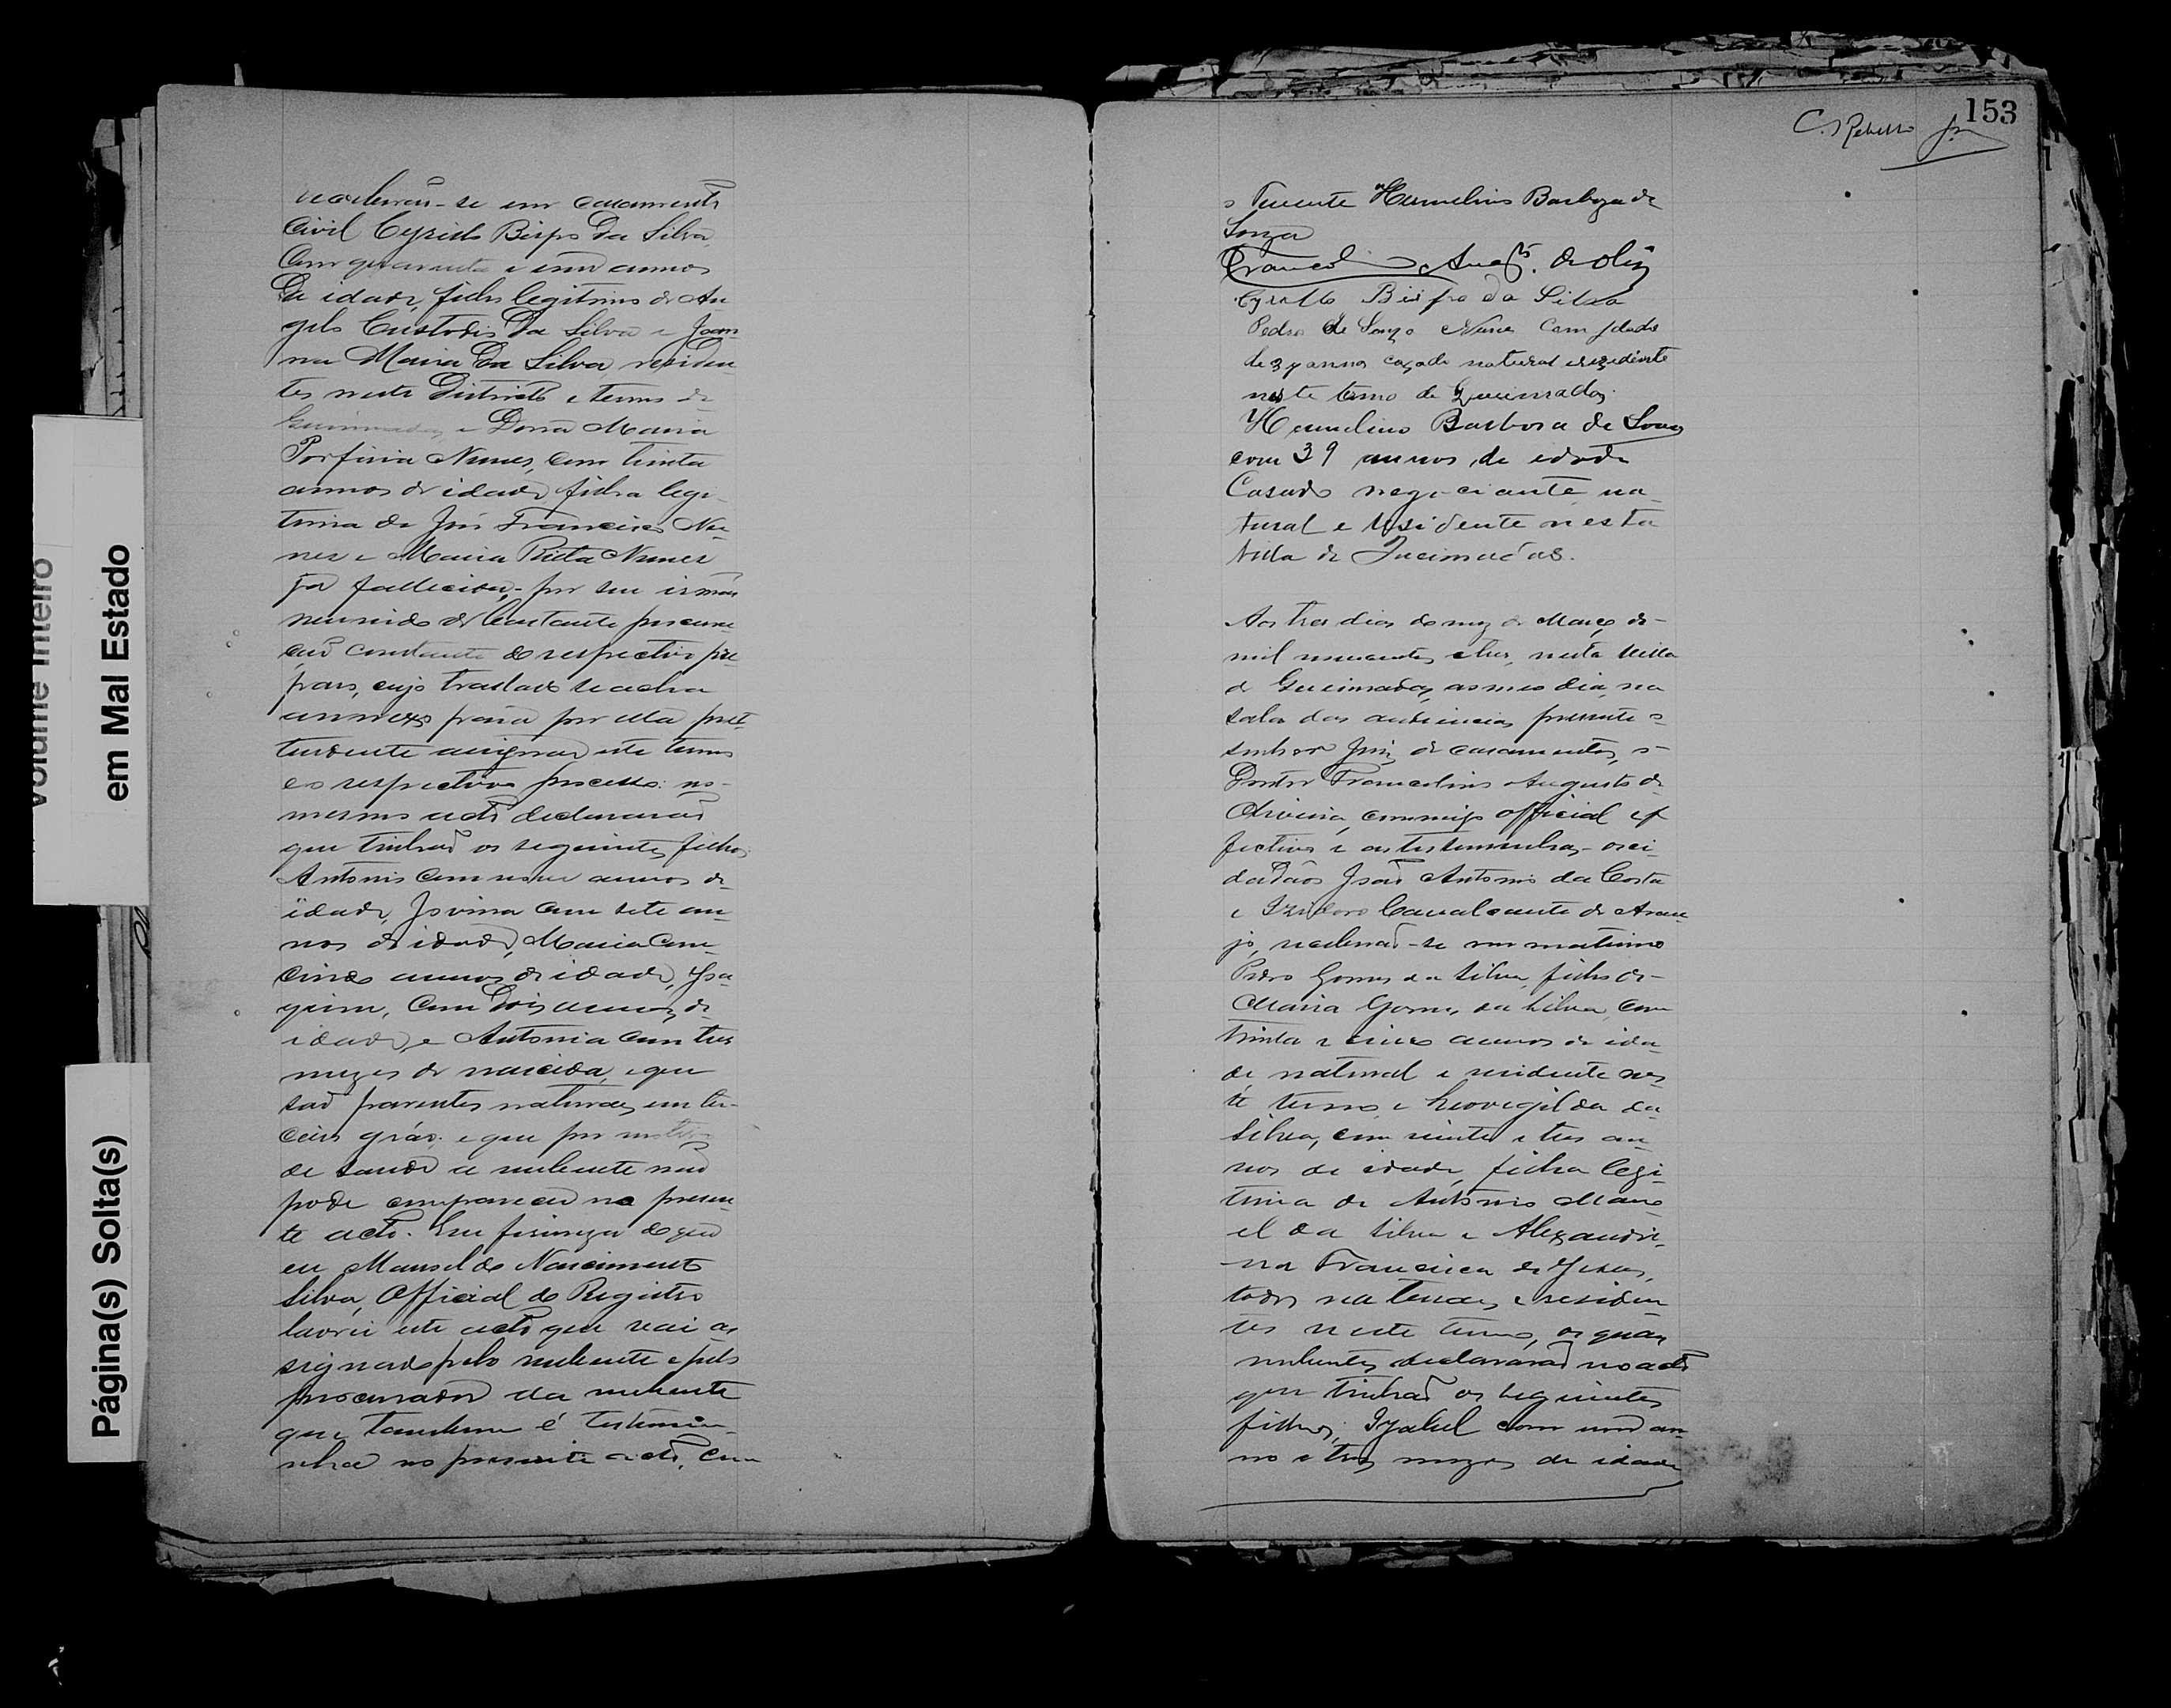 Volume Inteiro
em Mal Estado
Página(s) Solta(s)
receberão-se em casamento
Civil Cyrillo Bispo da Silva,
Com quarenta e um annos
de idade, filho legitimo de An-
gelo Custodio da Silva e Joan-
na Maria da Silva, residen-
tes neste Districto e termo de
Queimadas, e Dona Maria
Porfiria Nunes, com trinta
annos de idade, filha legi-
tima de José Francisco Nu-
nes e Maria Rita Nunes
já fallecida, por seu irmão
munido de bastante procura-
ção constante do respectivo pre-
paro, cujo traslado se acha
annexo para por ella pret-
tendente assignar este termo
e o respectivo processo: no
mesmo acto declararão
que tinhão os seguintes filhos
Antonio com nove annos de
idade, Jovina com sete an-
nos de idade, Maria com
cinco annos de idade, Joa-
quim, com dois annos de
idade, e Antonia com tres
mezes de nascida, e que
são parentes naturaes em ter-
ceiro gráo. e que por motivo
de saude a nubente não
pode comparecer no presen-
te acto. Em firmeza do que
eu Manoel do Nascimento
Silva, Official do Registro
lavrei este acto que vai as-
signado pelo nubente e pelo
procurador da nubente
que tambem é testemu-
nha no presente acto, com
153
C. Rebello Jr
o Tenente Hermelino Barboza de
Souza
Francolino Augto. de Olivª
Cyrillo Bispo da Silva
Pedro de Souza Nunes com idade
de 37 annos cazado natural e rezidente
neste termo de Queimadas.
Hermelino Barbosa de Souza
com 39 annos, de edade
Casado negociante na-
tural e residente nesta
Villa de Queimadas.
Aos tres dias do mez de Março de
mil novecentos e tres, nesta Villa
de Queimadas, ao meio dia, na
sala das audiencias, presente o
senhor Juiz de casamentos, o
Doutor Francolino Augusto de
Oliveira, commigo official ef-
fectivo e as testemunhas os ci-
dadãos João Antonio da Costa
e Izidoro Cavalcante de Arau-
jo, receberão-se em matrimo
Pedro Gomes da Silva, filho de
Maria Gomes da Silva, com
trinta e cinco annos de ida-
de, natural e residente nes-
te termo, e Leovegilda da
Silva, com vinte e tres an-
nos de idade, filha legi-
tima de Antonio Mano-
el da Silva e Alexandri-
na Francisca de Jesus,
todos naturaes e residen-
tes neste termo, os quaes
nubentes declararão no acto
que tinhão os seguintes
filhos; Izabel com um an-
no e tres mezes de idade